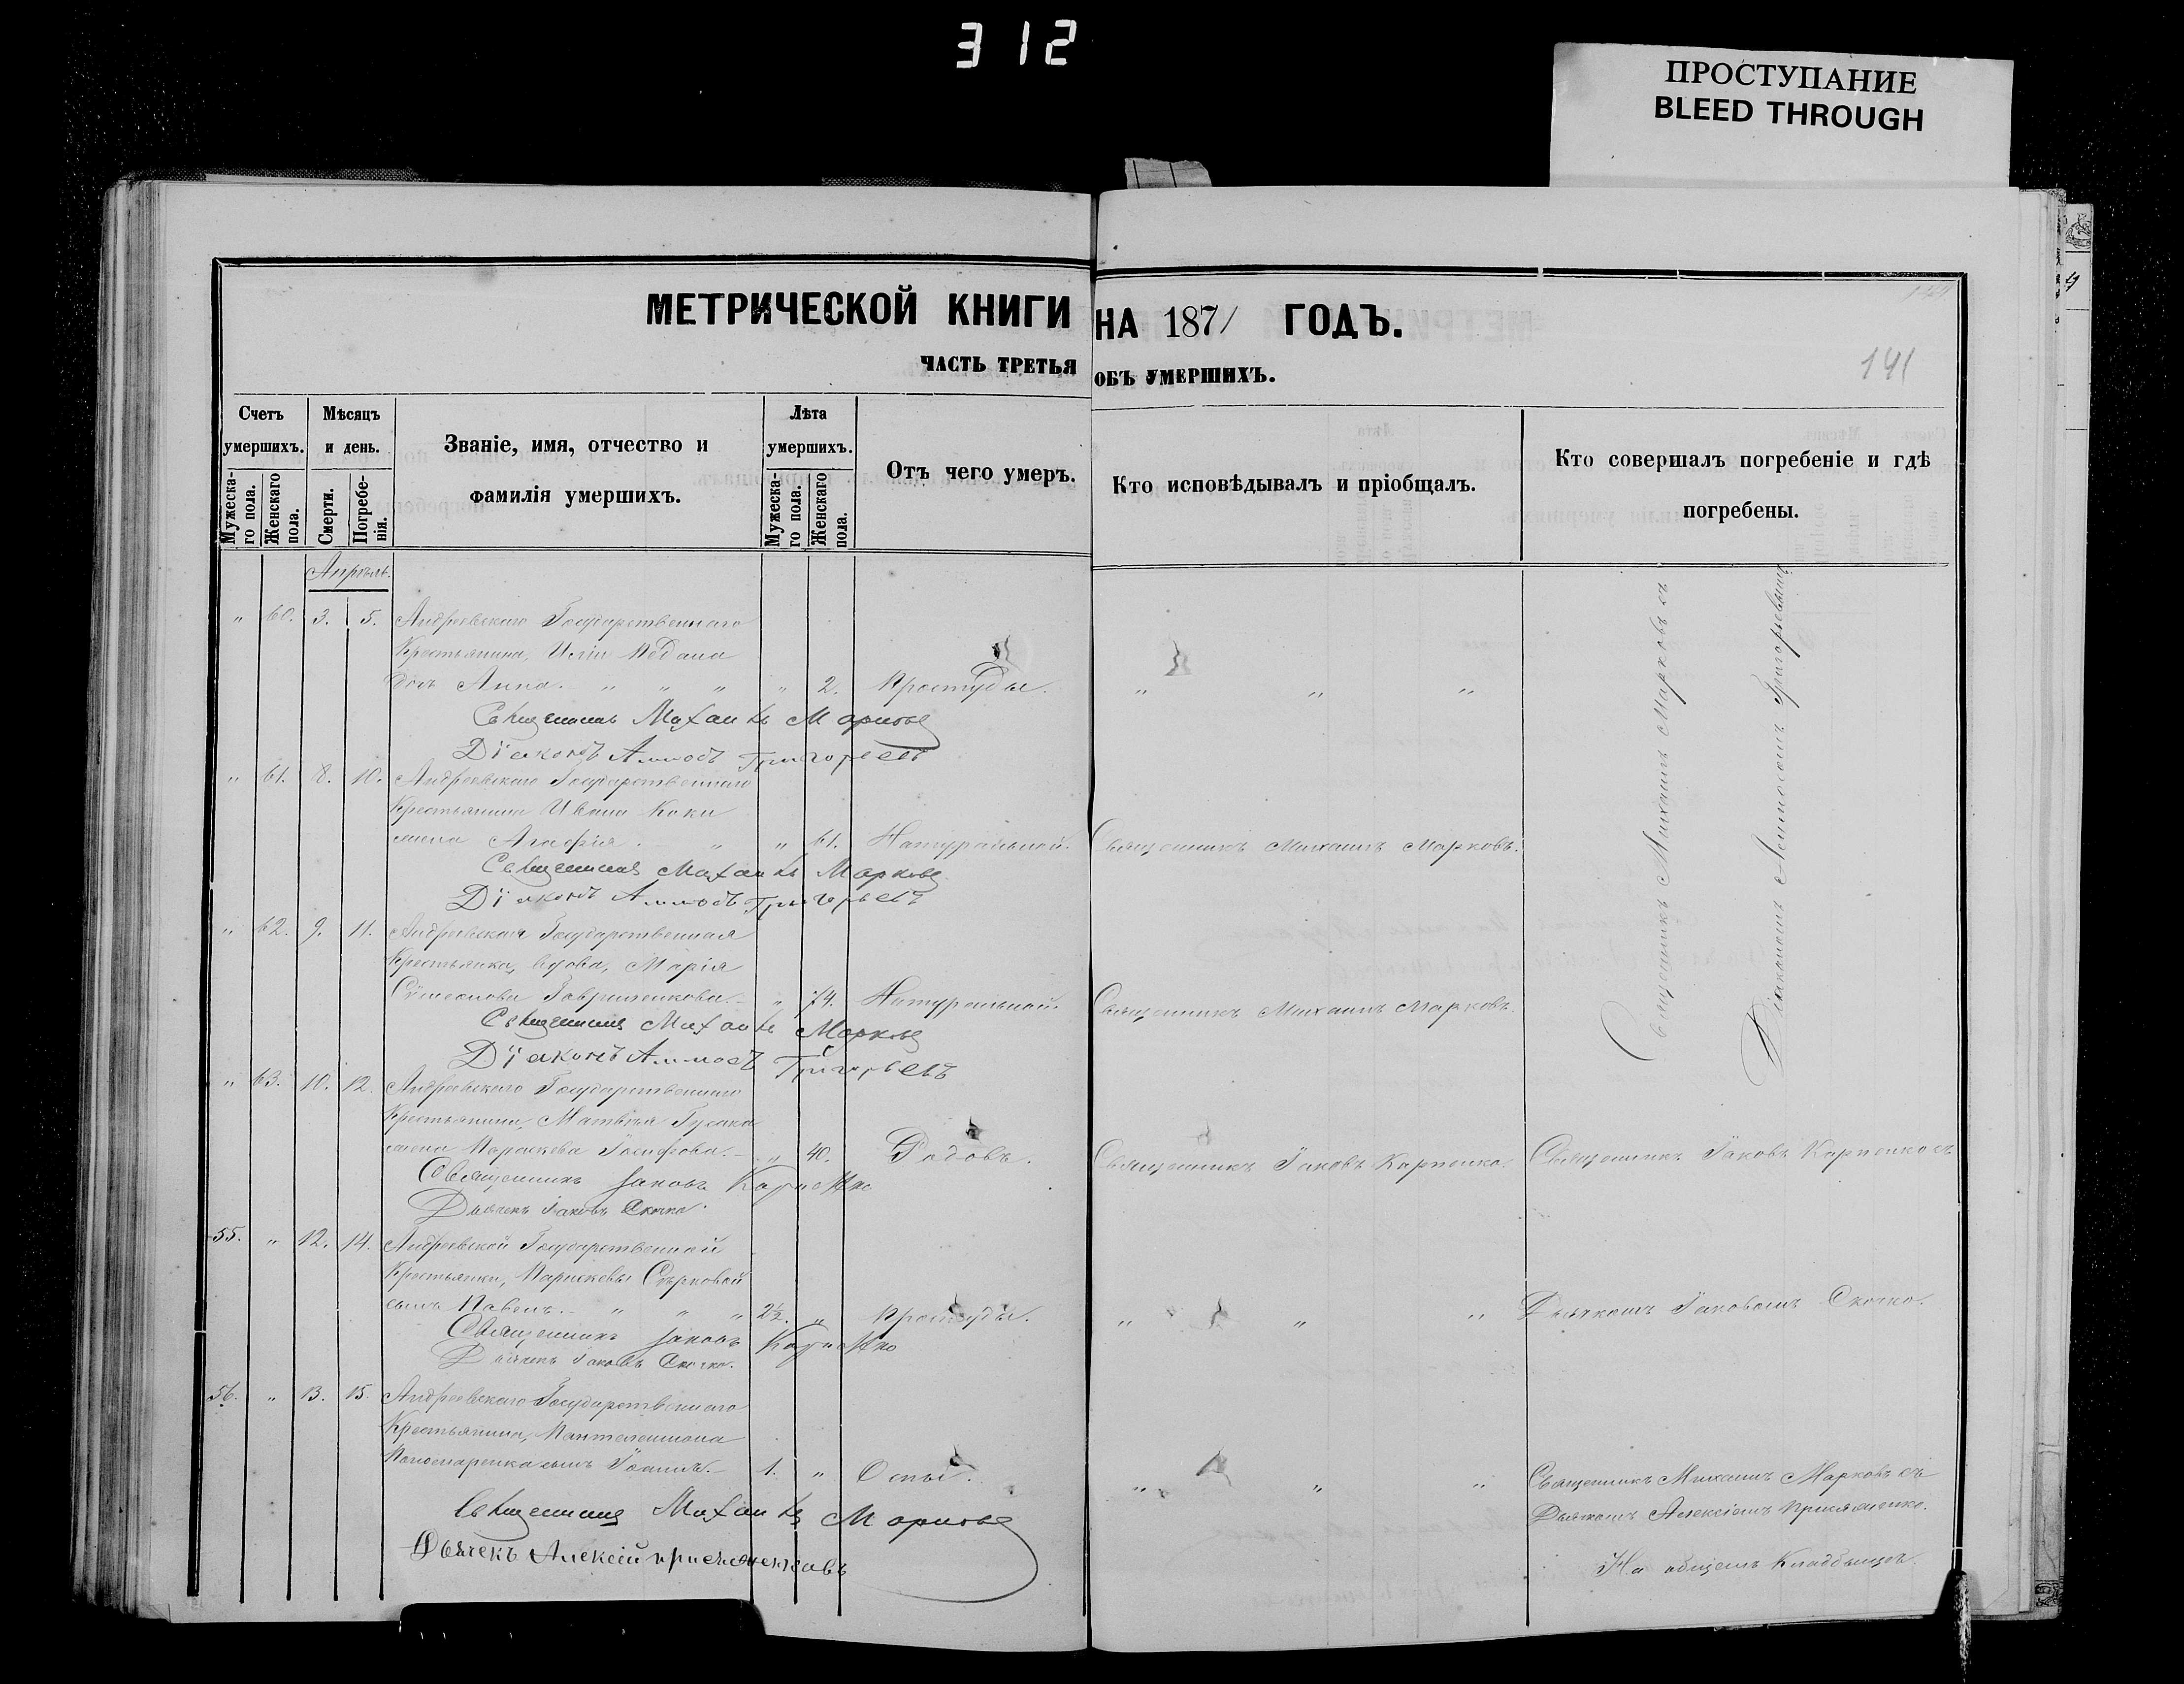 312
ПРОСТУПАНИЕ
BLEED THROUGH
МЕТРИЧЕСКОЙ КНИГИ НА 1871 ГОДЪ.
ЧАСТЬ ТРЕТЬЯ ОБЪ УМЕРШИХЪ.
141
Счетъ умершихъ.
Мужеска-го пола.
Женскаго пола.
Мѣсяцъ и день.
Смерти.
Погребе-нія.
Званіе, имя, отчество и фамилія умершихъ.
Лѣта умершихъ.
Мужеска-го пола.
Женскаго пола.
Отъ чего умеръ.
Кто исповѣдывалъ и пріобщалъ.
Кто совершалъ погребеніе и гдѣ погребены.
Апрѣль.
" 60. 3. 5. Андреевскаго Государственнаго
Крестьянина,
дочь Анна. " " " " 2. Простуды. " " "
Священникъ Михаилъ Марковъ
Діаконъ Григорьевъ
" 61. 8. 10. Андреевскаго Государственнаго
Крестьянина Ивана Коки
жена Агафія. " " 61. Натуральной. Священникъ Михаилъ Марковъ.
Священникъ Михаилъ Марковъ
Діаконъ Григорьевъ
" 62. 9. 11. Андреевская Государственная
Крестьянка, вдова, Марія
Симеонова Гавриленкова. " 74. Натуральной. Священникъ Михаилъ Марковъ.
Священникъ Михаилъ Марковъ
Діаконъ Григорьевъ
Священникъ Михаилъ Марковъ съ
Діакономъ Григорьевымъ
" 63. 10. 12. Андреевскаго Государственнаго
Крестьянина, Матвѣя Гусака
жена Параскева Іосифова. " 40. Родовъ. Священникъ Іаковъ Карпенко. Священникъ Іаковъ Карпенко съ
Священникъ Іаковъ Карпенко
Дьячекъ Іаковъ Скочко.
55. " 12. 14. Андреевской Государственной
Крестьянки, Параскевы Сѣрковой
сынъ Павелъ. " " " 2½. " Простуды. " " " Дьячкомъ Іаковомъ Скочко.
Священникъ Іаковъ Карпенко
Дьячекъ Іаковъ Скочко.
56. " 13. 15. Андреевскаго Государственнаго
Крестьянина, Пантелеимона
Пономаренка сынъ Іоаннъ. 1. " Оспы. " " " Священникъ Михаилъ Марковъ съ
Дьячкомъ Алексіемъ
Священникъ Михаилъ Марковъ
Дьячекъ Алексій
На общемъ Кладбищѣ.